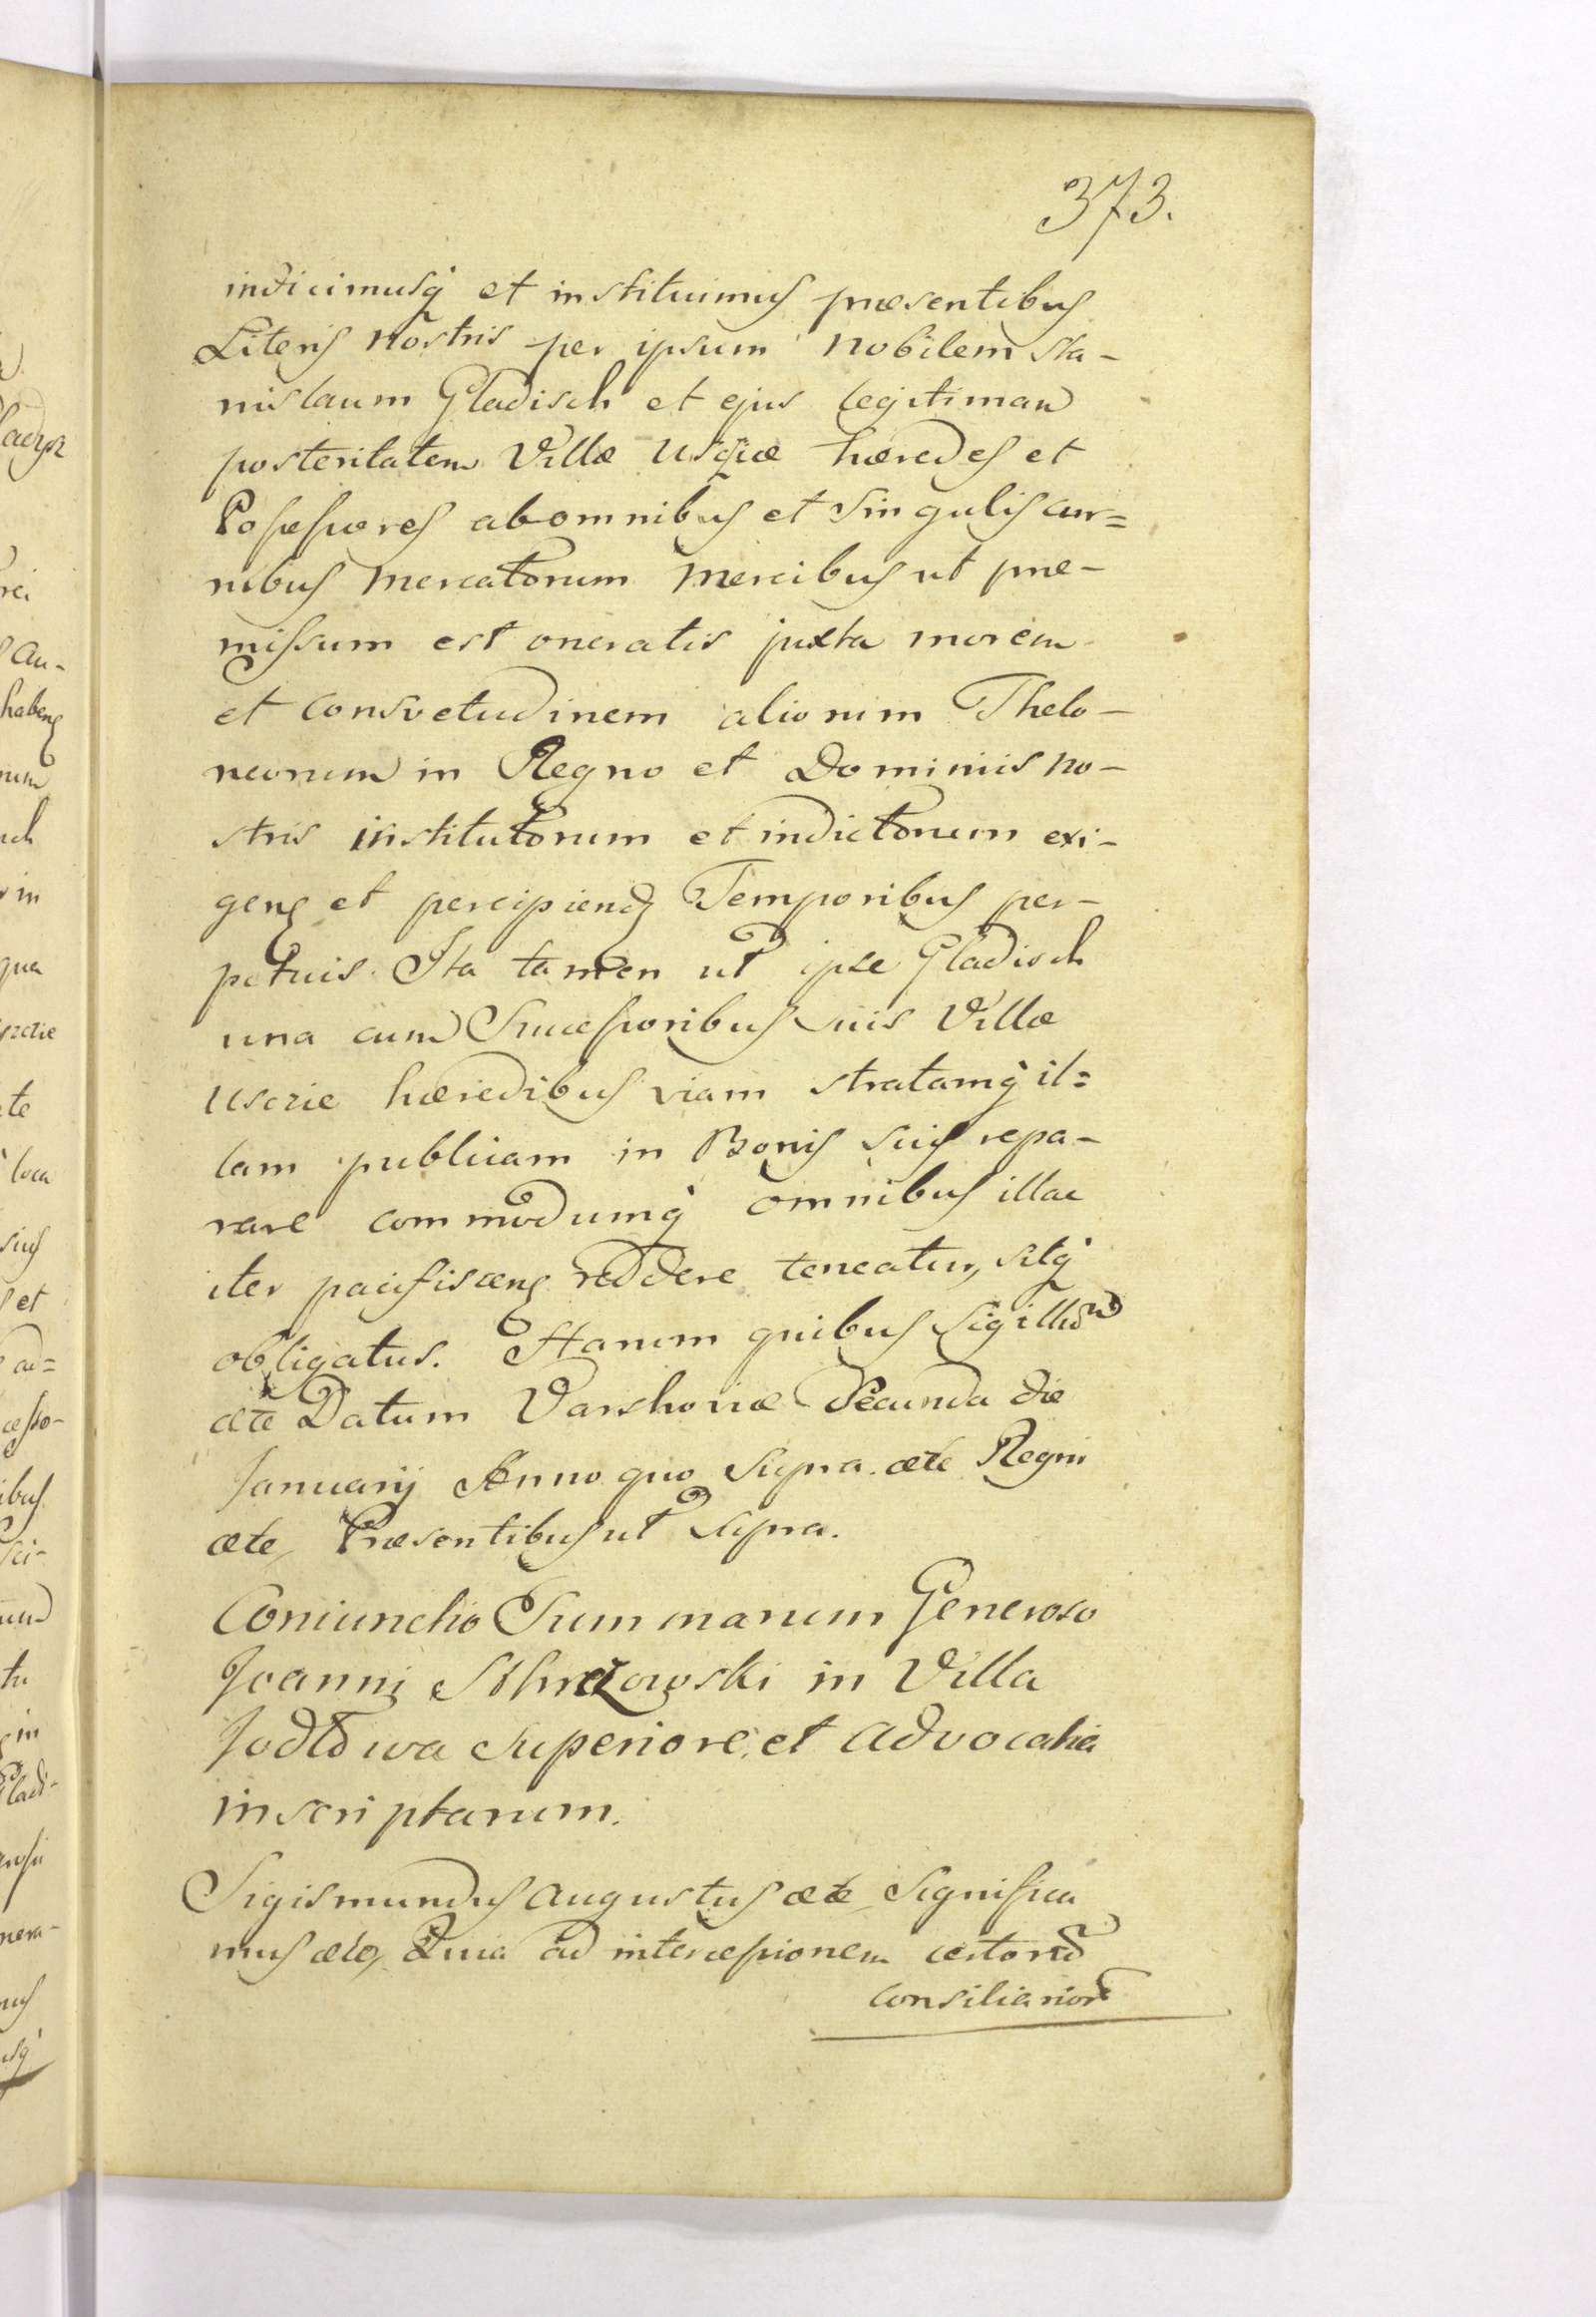 373.
indicimusq́ et instituimus præsentibus
Literis nostris per ipsum nobilem Sta-
nislaum Gladisch et ejus legitimam
posteritatem Villæ Usciæ hæredes et
Possessores ab omnibus et Singulis cur=
ribus Mercatorum Mercibus ut præ-
missum est oneratis juxta morem
et Consvetudinem aliorum Thelo-
neorum in Regno et Dominiis no-
stris institutorum et indictorum exi-
gen et percipiend Temporibus per-
petuis Ita tamen ut ipse Gladisch
una cum Successoribus suis Villæ
Usciæ hæredibus viam stratamq́ il=
lam publicam in Bonis suis repa-
rare commodumq́ omnibus illac
iter pacifiscen reddere teneatur, sitq́
obligatus. Harum quibus Sigillum
ætc Datum Varshoviæ Secunda die
Januarij Anno quo Supra. ætc Regni
ætc, Præsentibus ut Supra.
Coniunctio Summarum Generoso
Joanni in Villa
Jodłowa Superiore, et Advocatia
inscriptarum.
Sigismundus Augustus ætc Significa
mus ætc, Quia ad intercessionem certorum
Consiliarior